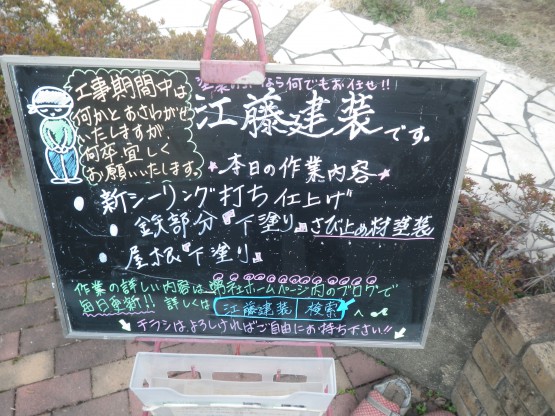 工事期間中は
何かとおさわがせ
いたしますが、
何卒、宜しく
お願いいたします。
なら何でもお任せ!!
江藤建装です。
本日の作業内容
・新シーリング打ち仕上げ
・鉄部分『下塗り』さび止め材塗装
・屋根『下塗り』
作業の詳しい内容は、弊社ホームページ内のブログで
毎日更新!! 詳しくは 江藤建装 検索 へ
チラシはよろしければご自由にお持ち下さい!!